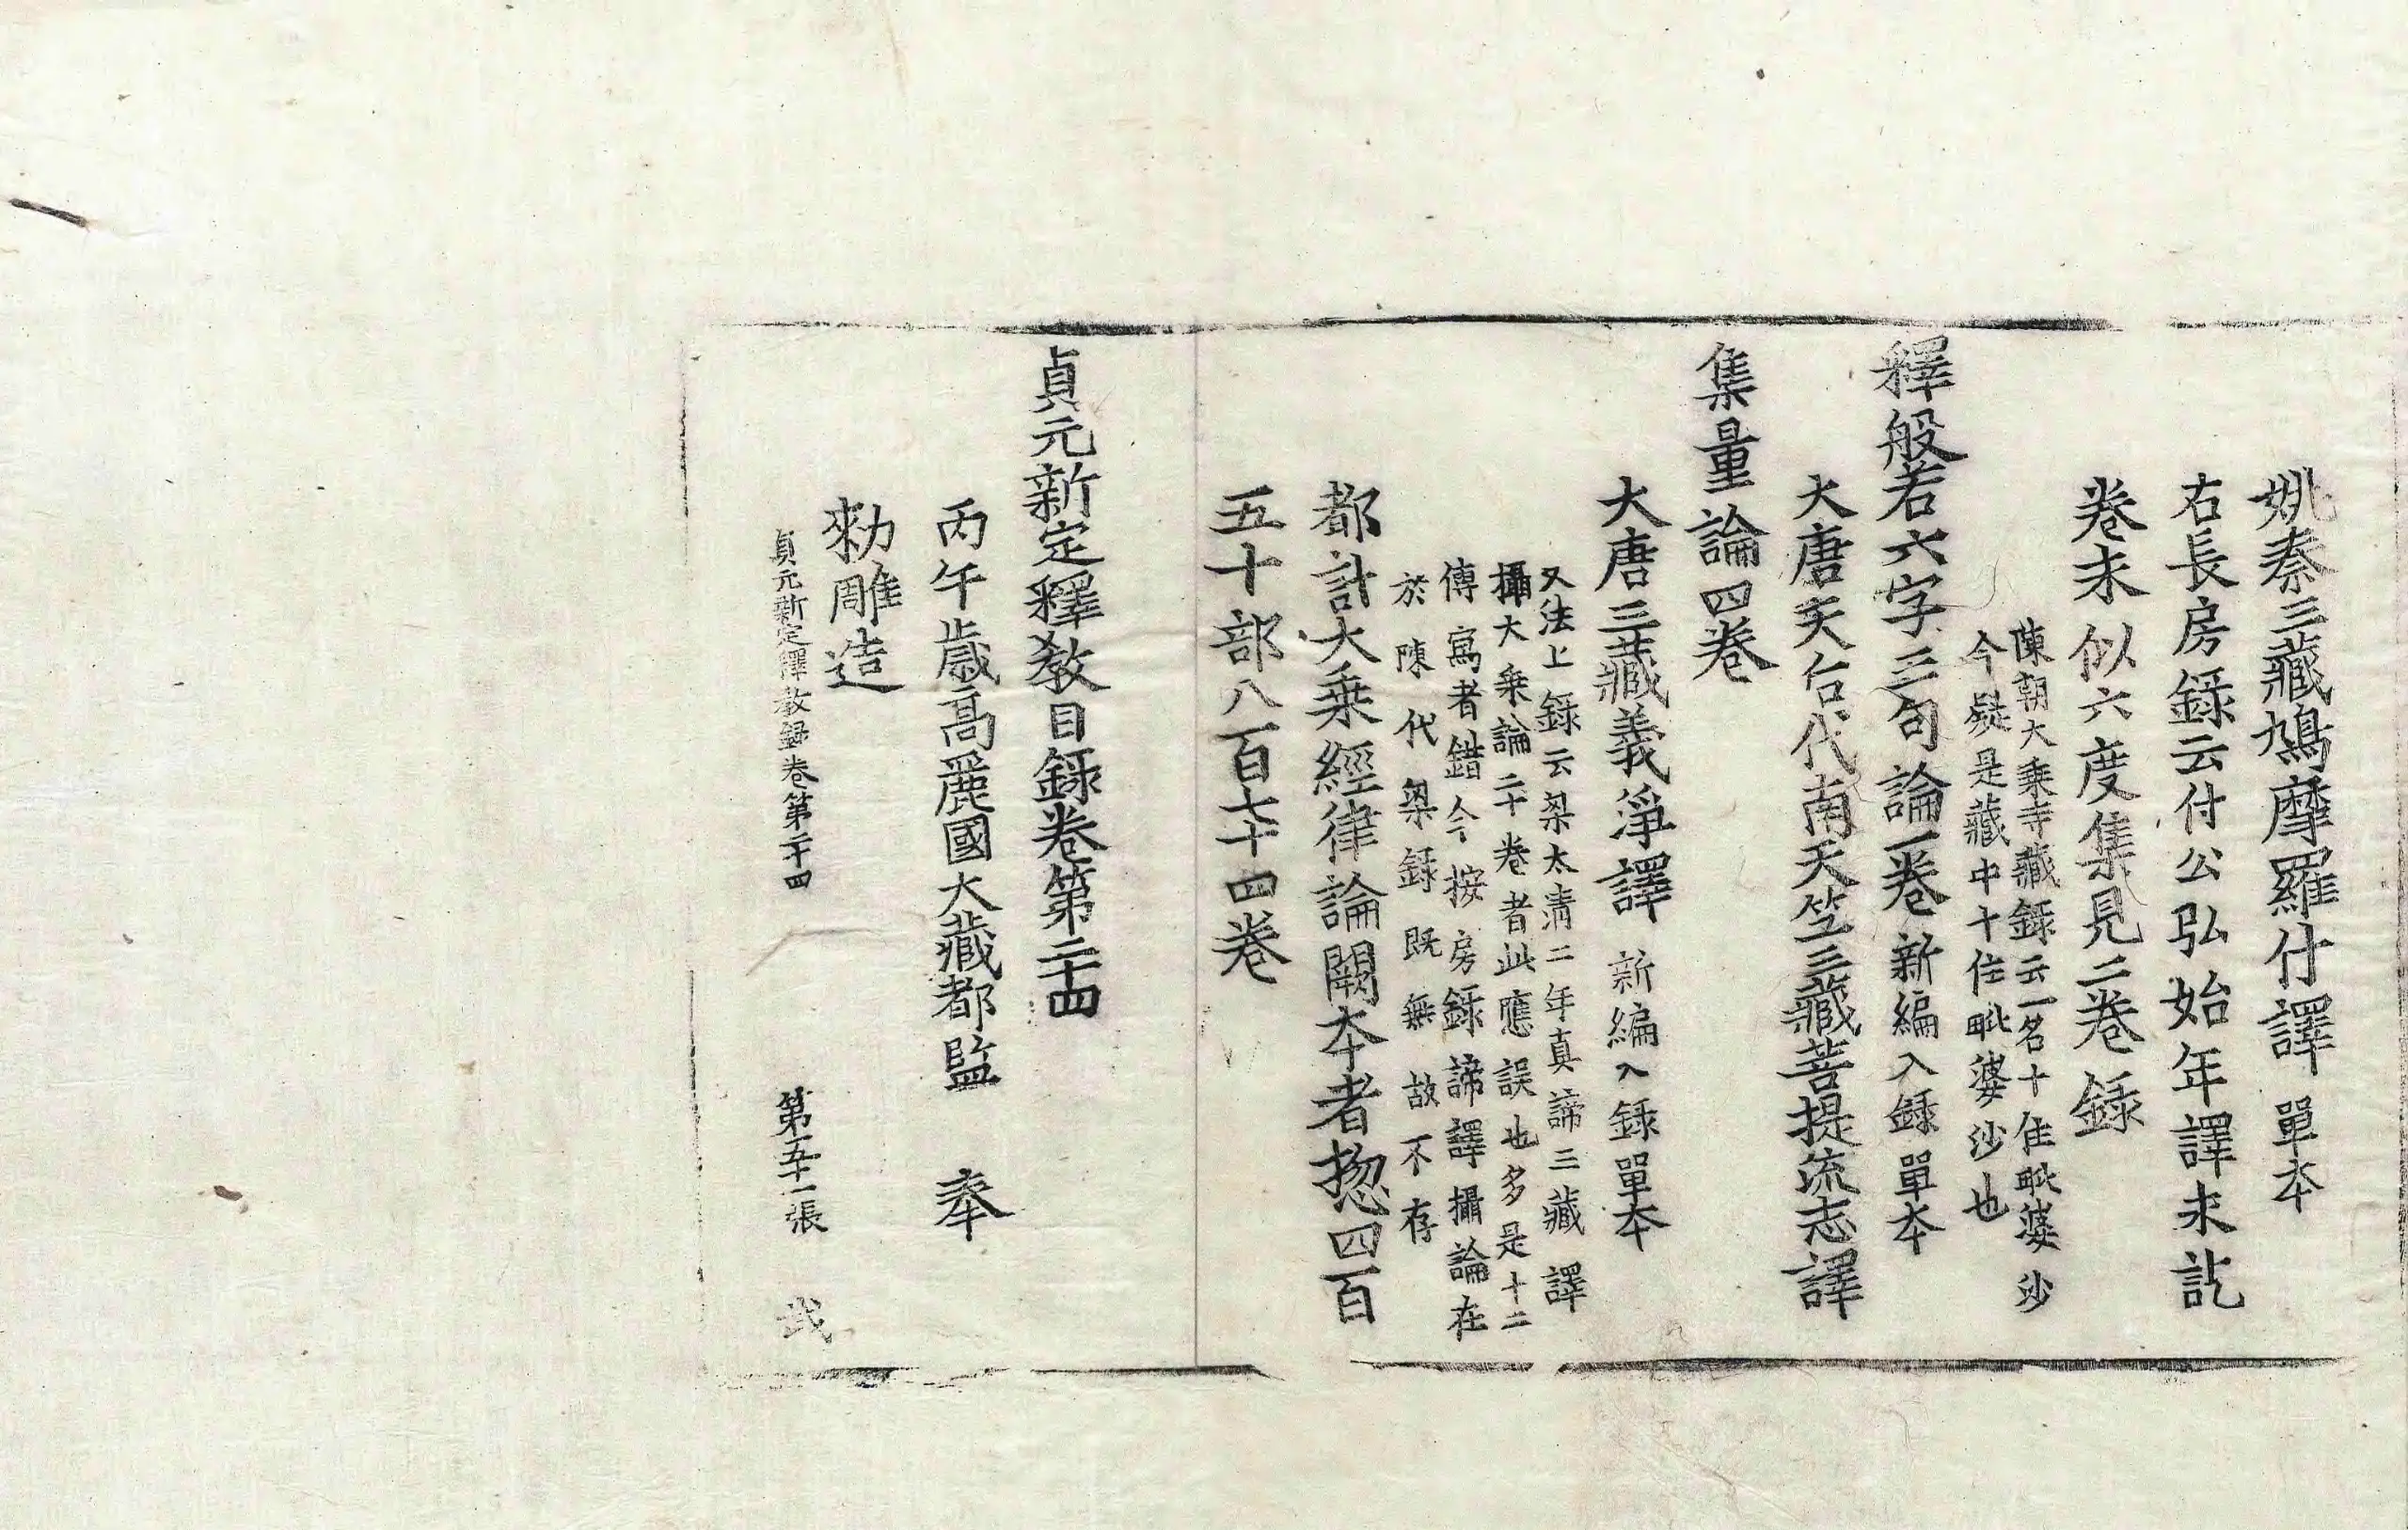 姚秦三藏鳩摩羅什譯 單本
右長房錄云什公弘始年譯未訖
卷未似六度集見二卷錄
陳朝大乘寺藏錄云一名十住毗婆沙
今疑是藏中十住毗婆沙也
釋般若六字三句論一卷 新編入錄單本
大唐天后代南天竺三藏菩提流志譯
集量論四卷
大唐三藏義淨譯 新編入錄單本
又法上錄云梁太清二年真諦三藏譯
攝大乘論二十卷者此應誤也多是十二
傳寫者錯今按房錄諦譯攝論在
於陳代梁錄既無故不存
都計大乘經律論闕本者揔四百
五十部八百七十四卷
貞元新定釋敎目錄卷第二十四
丙午歲高麗國大藏都監奉
勑雕造
貞元新定釋敎錄卷第二十四 第五十一張 弐